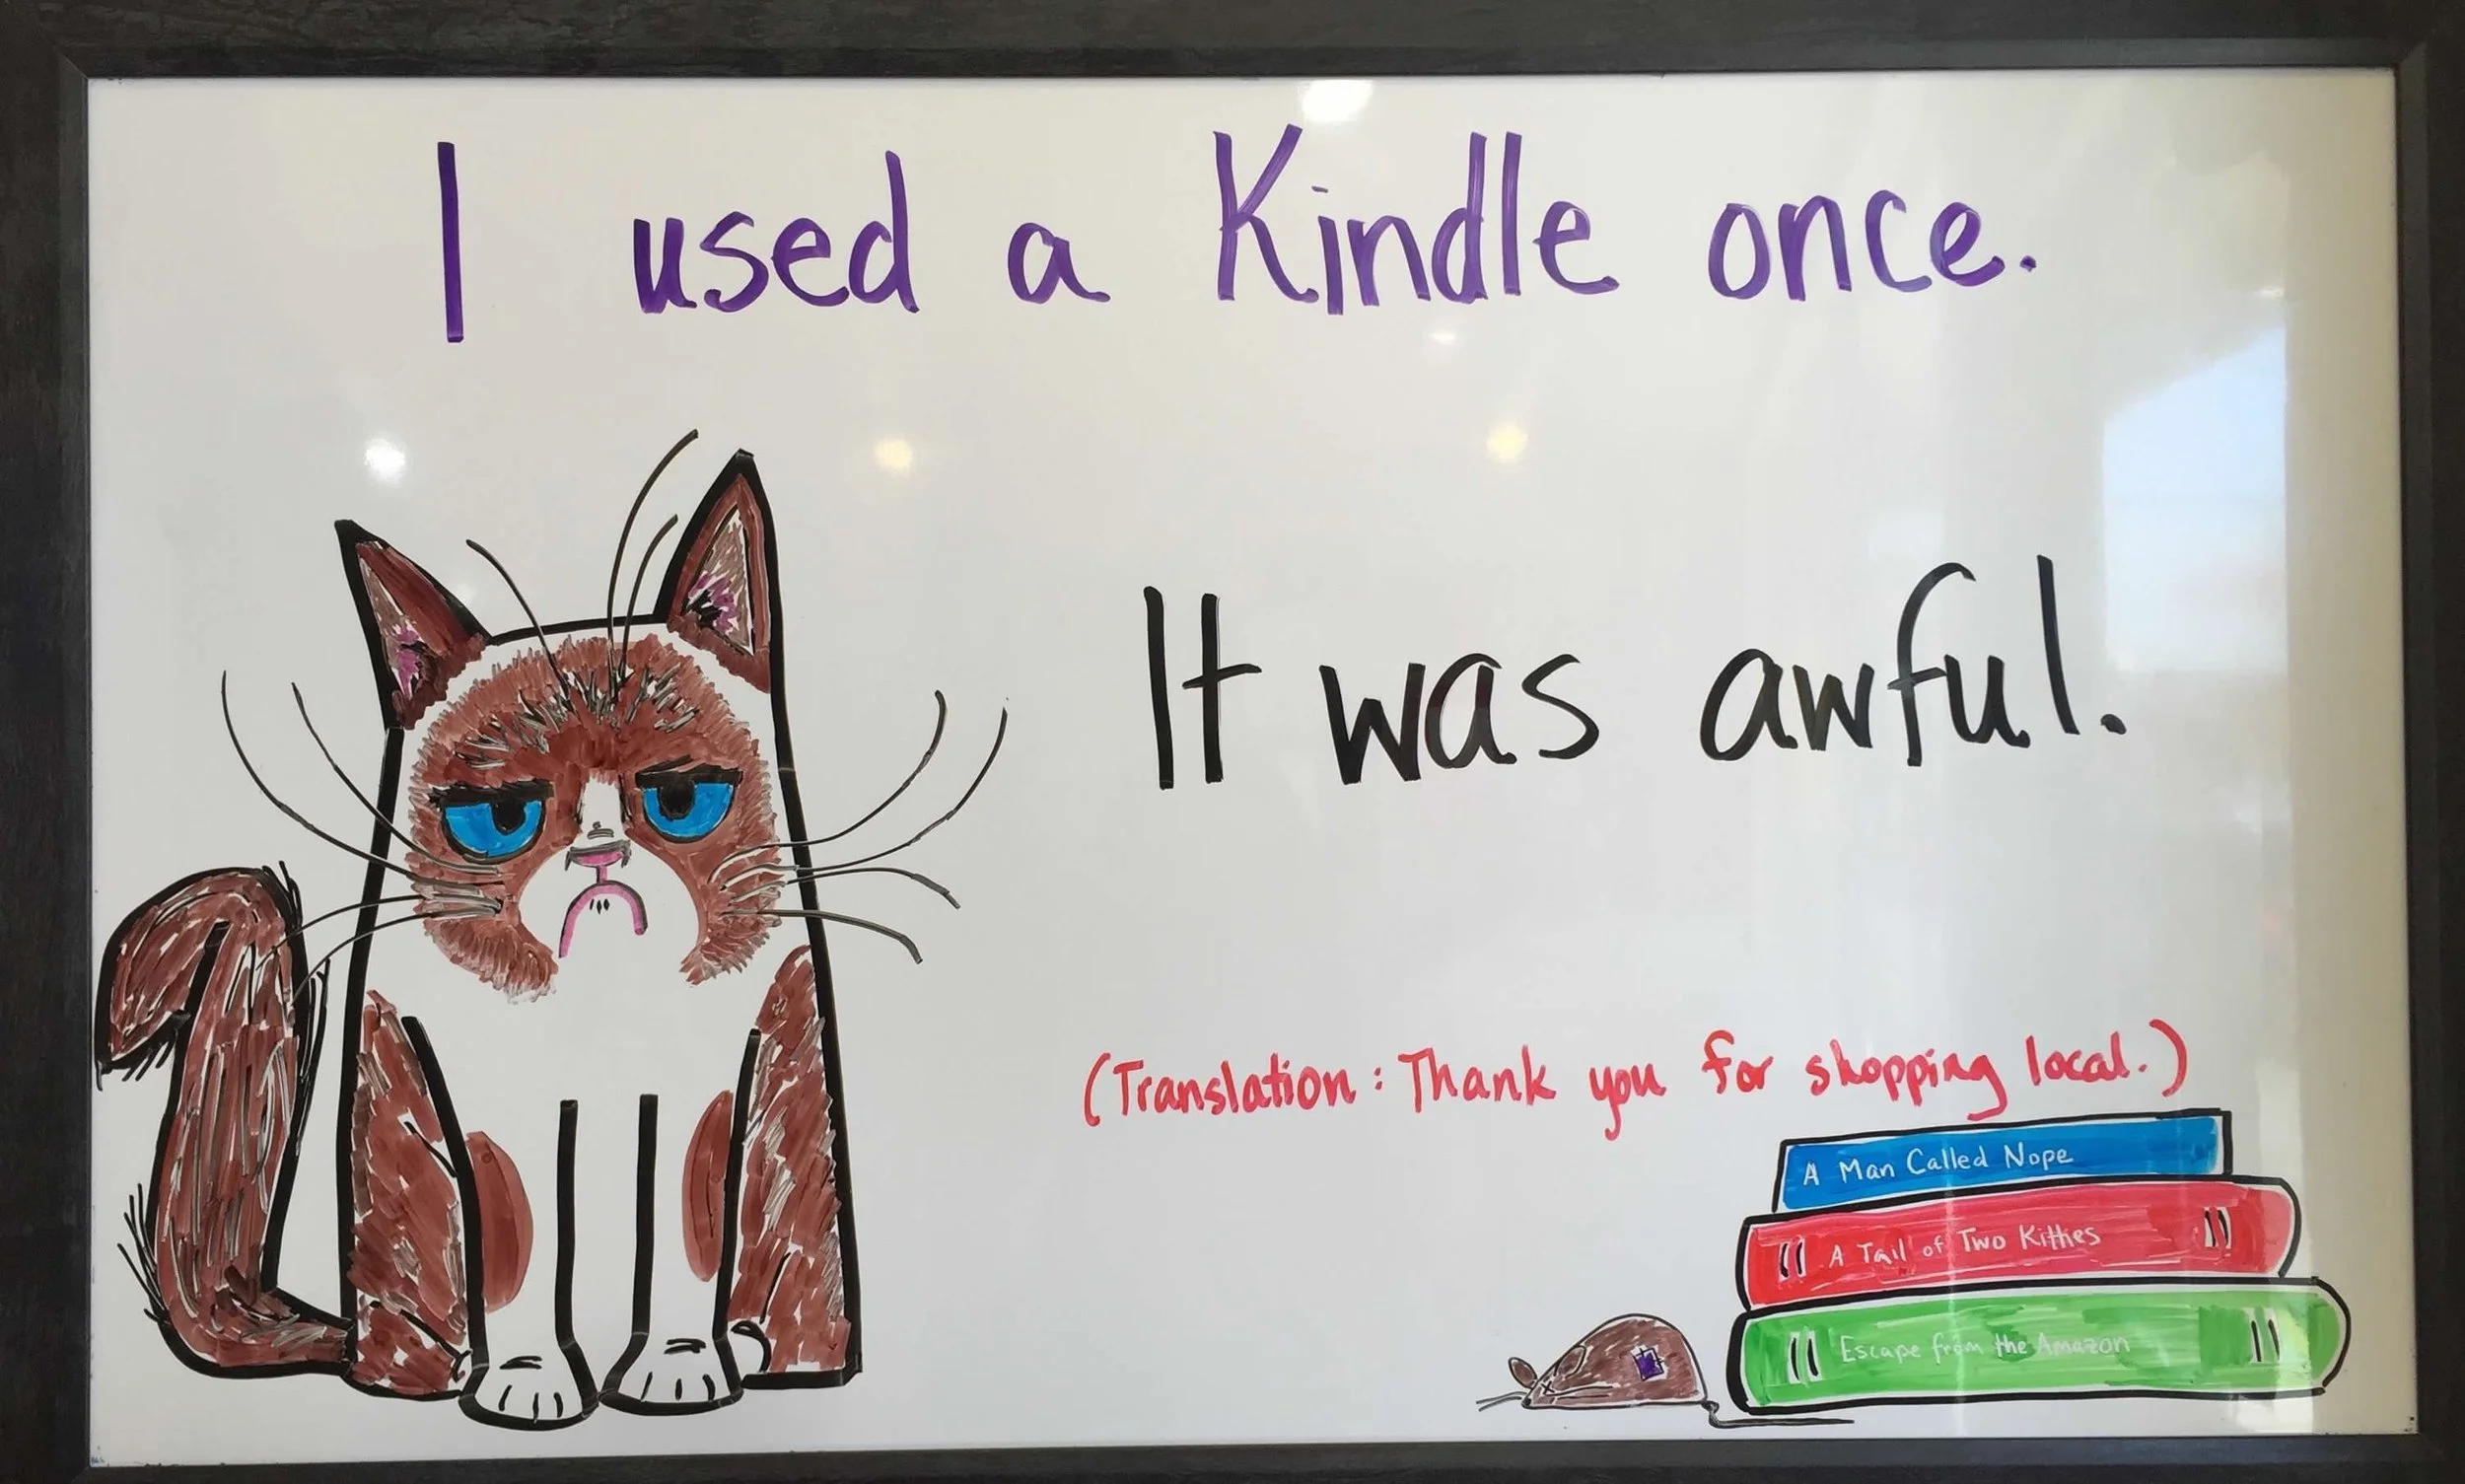 I used a Kindle once.
It was awful.
(Translation: Thank you for shopping local.)
A Man Called Nope
A Tail of Two Kitties
Escape from the Amazon